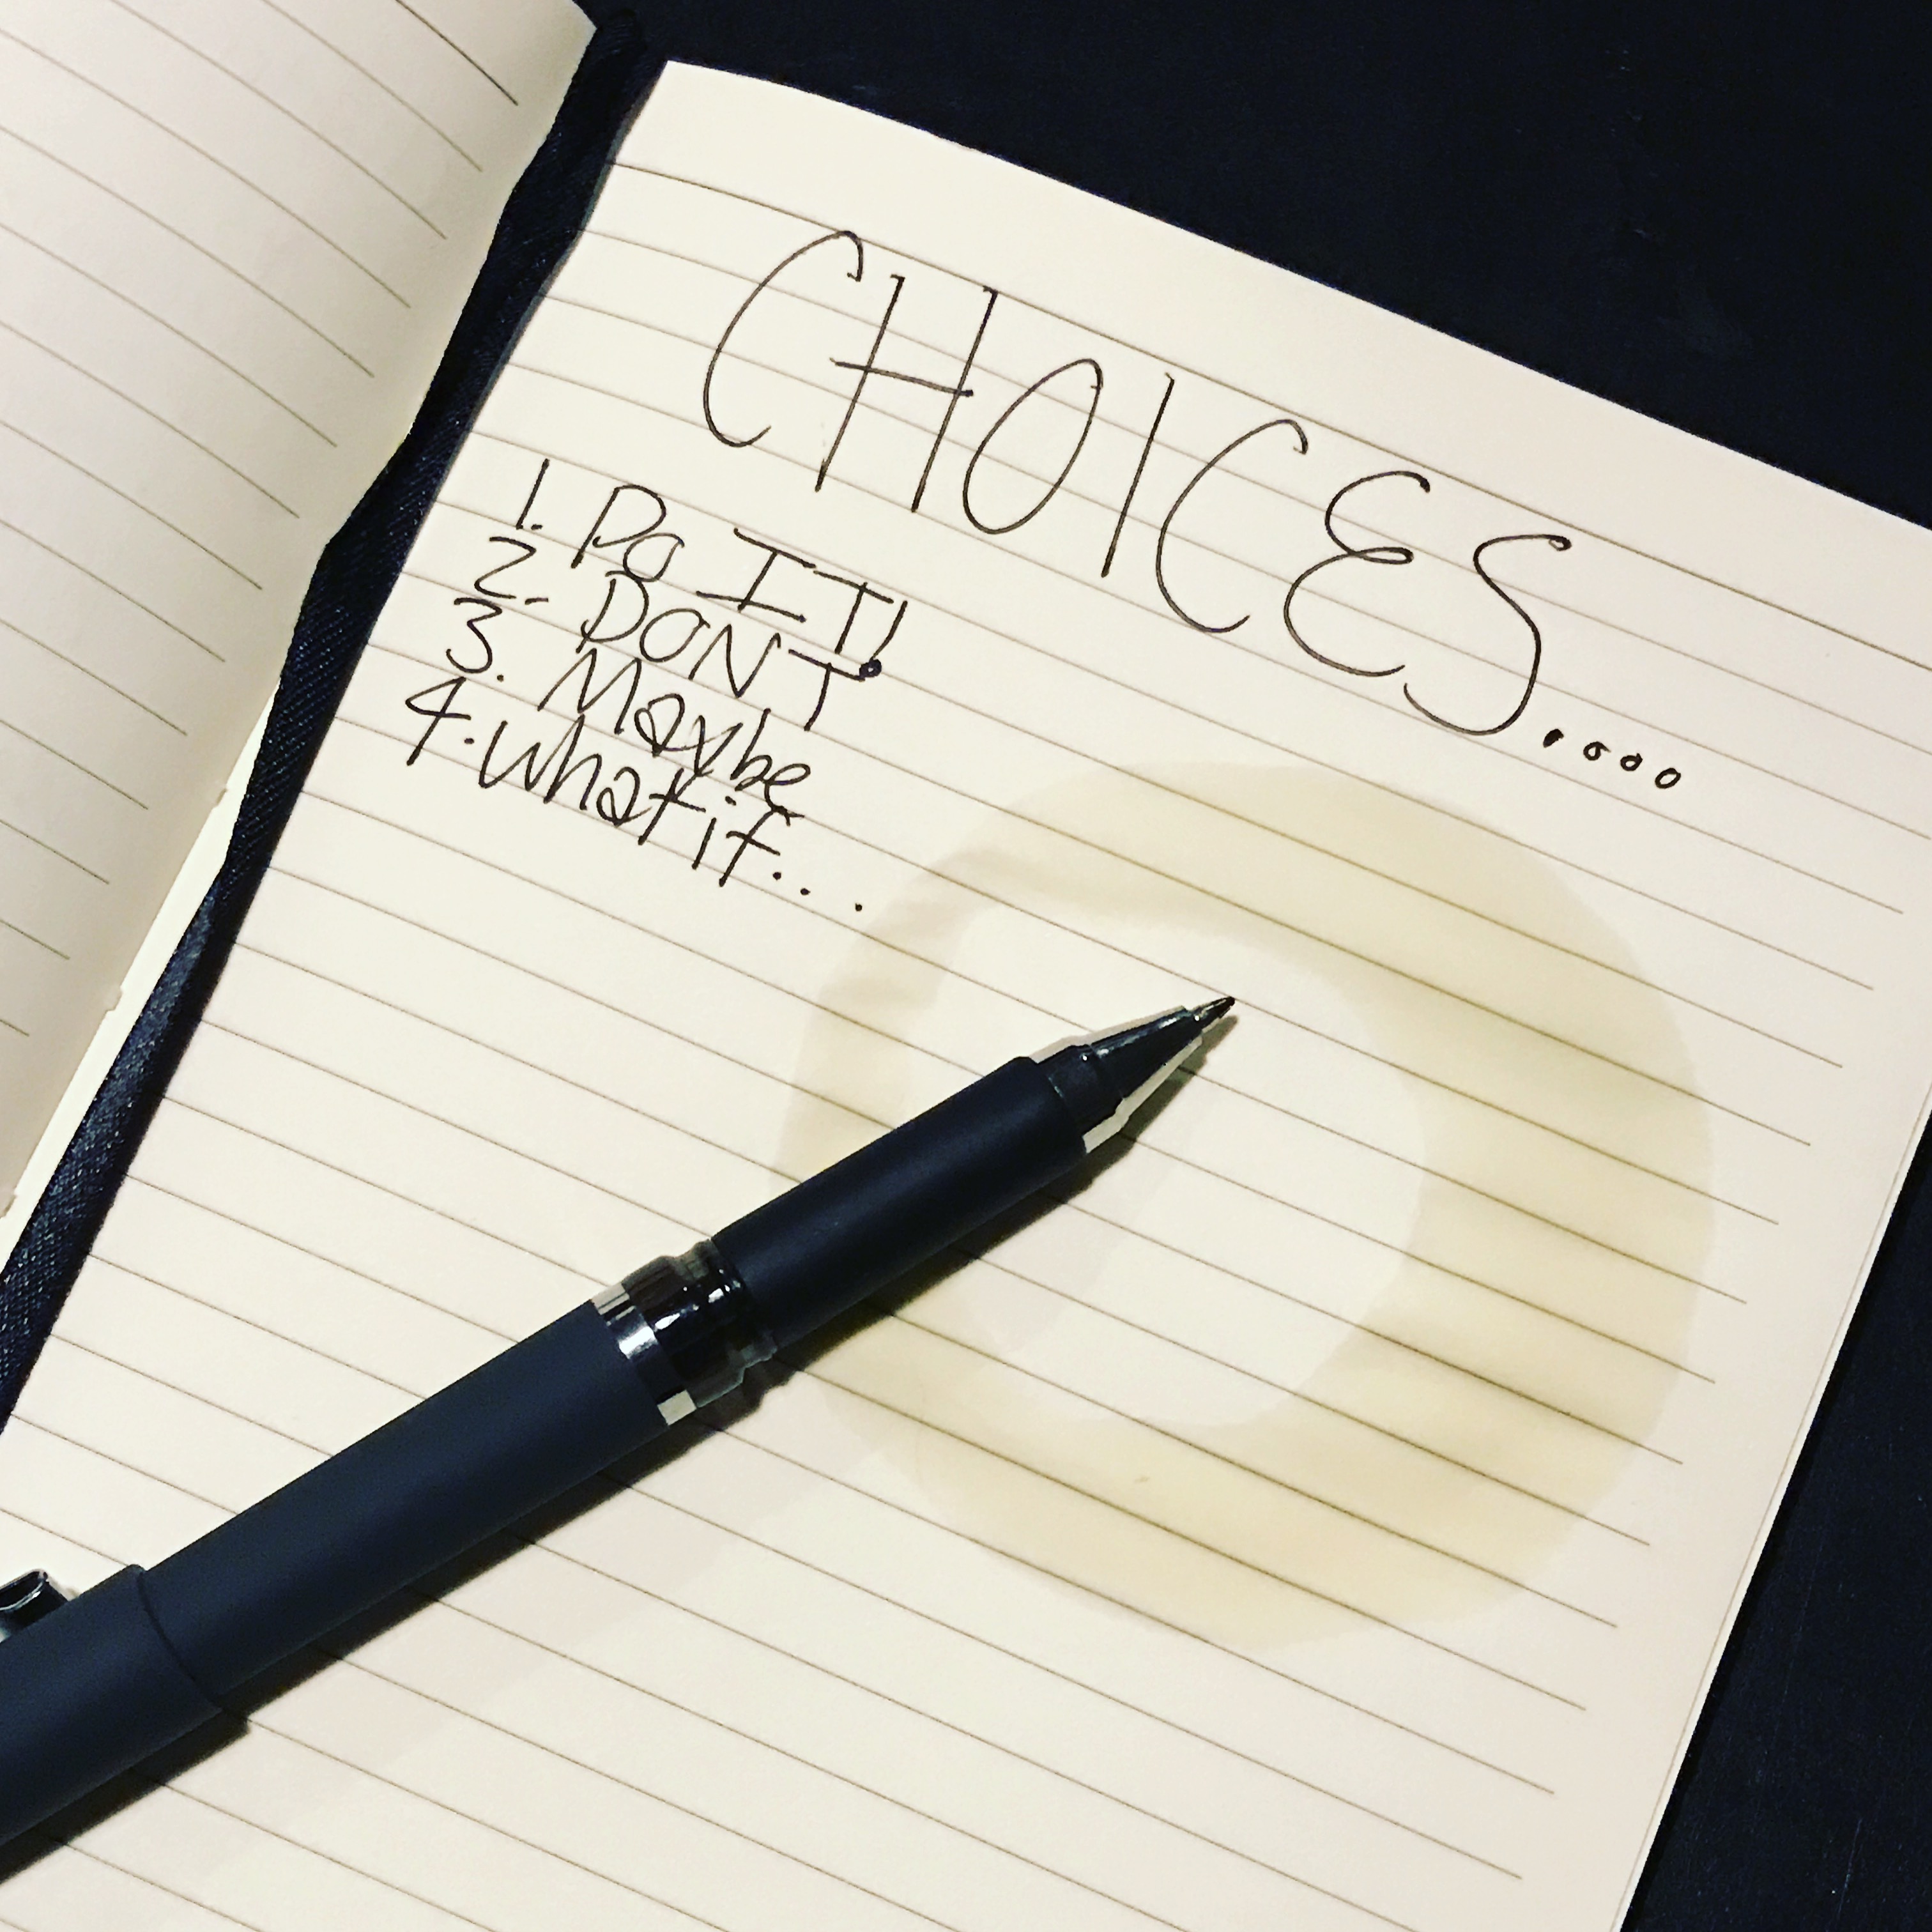 CHOICES....
1. Do IT!
2. DONT
3. Maybe
4. what if...